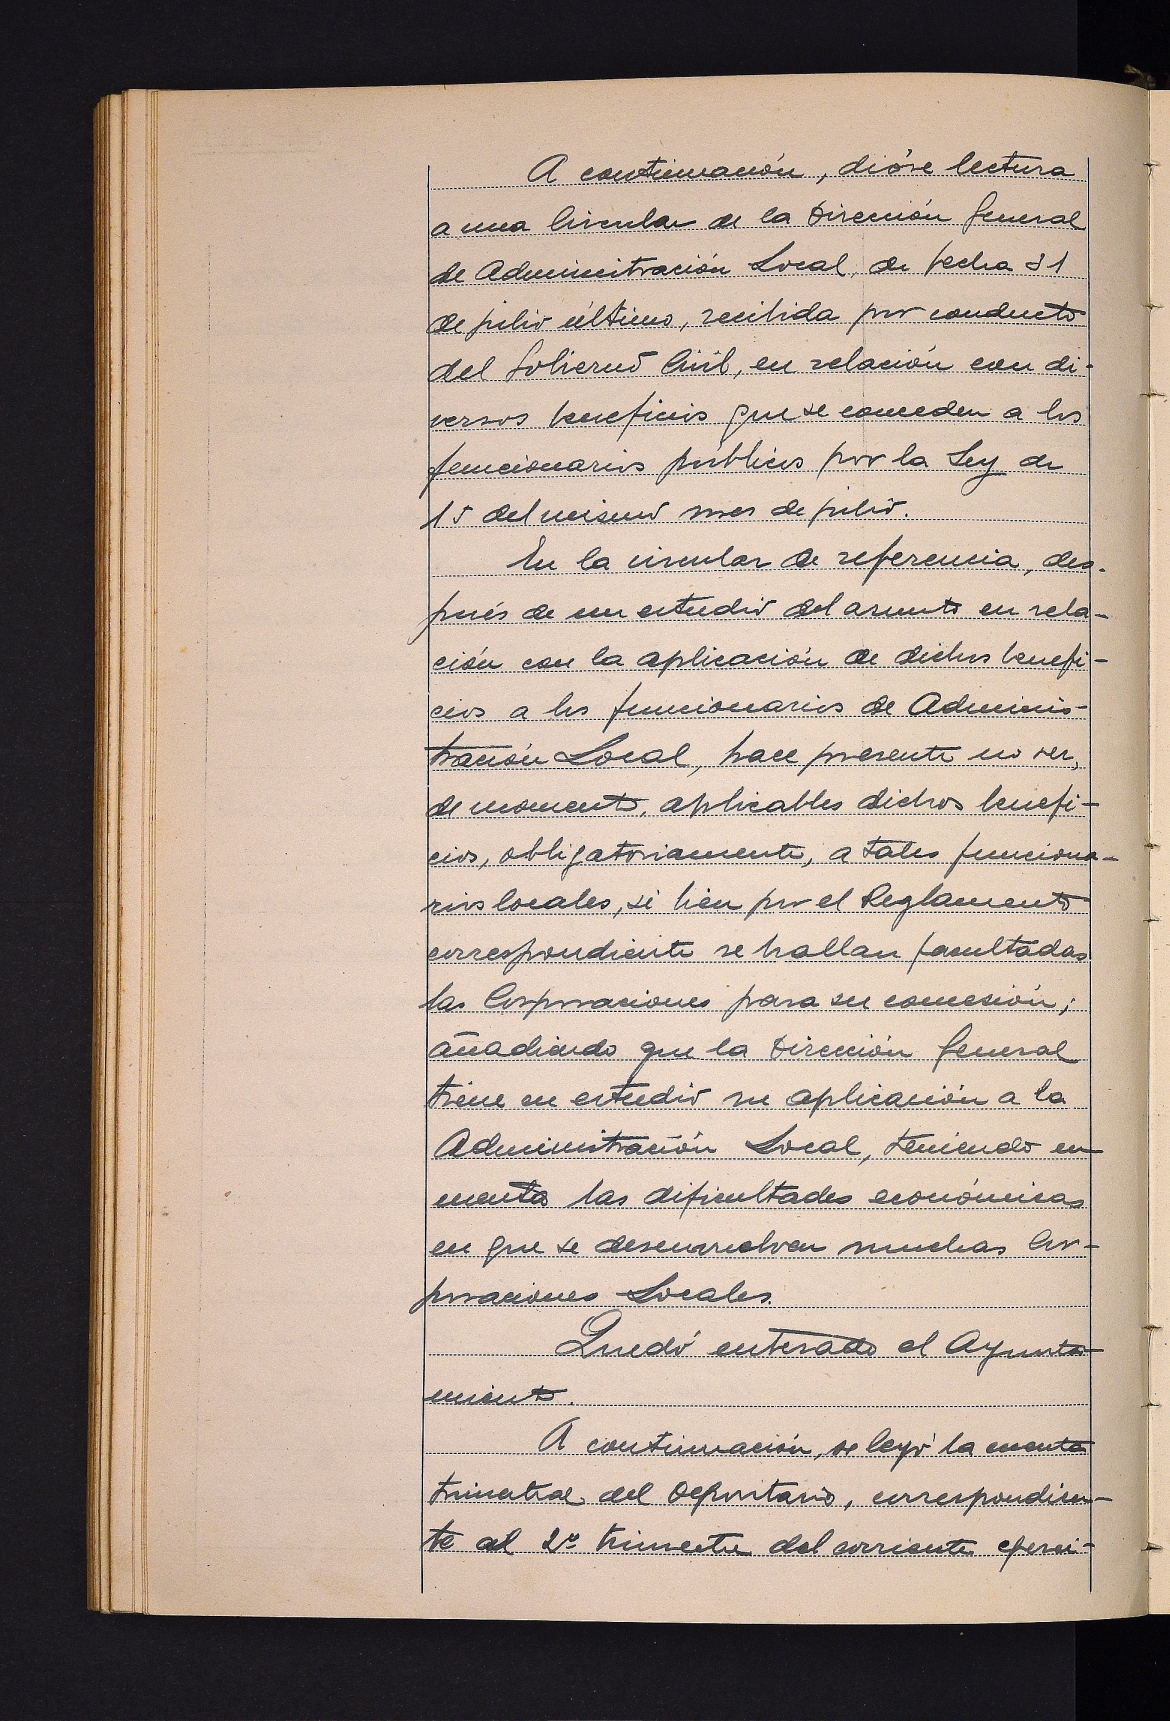 A continuación, dióse lectura
a una Circular de la Dirección General
de Administración Local, de fecha 31
de julio último, recibida por conducto
del Gobierno Civil, en relación con di-
versos beneficios que se conceden a los
funcionarios públicos por la Ley de
15 del mismo mes de julio.
En la circular de referencia, des-
pués de un estudio del asunto en rela-
ción con la aplicación de dichos benefi-
cios a los funcionarios de Adminis-
tración Local, hace presente no ser,
de momento, aplicables dichos benefi-
cios, obligatoriamente, a tales funciona-
rios locales, si bien por el Reglamento
correspondiente se hallan facultadas
las Corporaciones para su concesión;
añadiendo que la Dirección General
tiene en estudio su aplicación a la
Administración Local, teniendo en
cuenta las dificultades económicas
en que se desenvuelven muchas Cor-
poraciones Locales.
Quedó enterado el Ayunta-
miento.
A continuación, se leyó la cuenta
trimestral del Depositario, correspondien-
te al 2º trimestre del corriente ejerci-